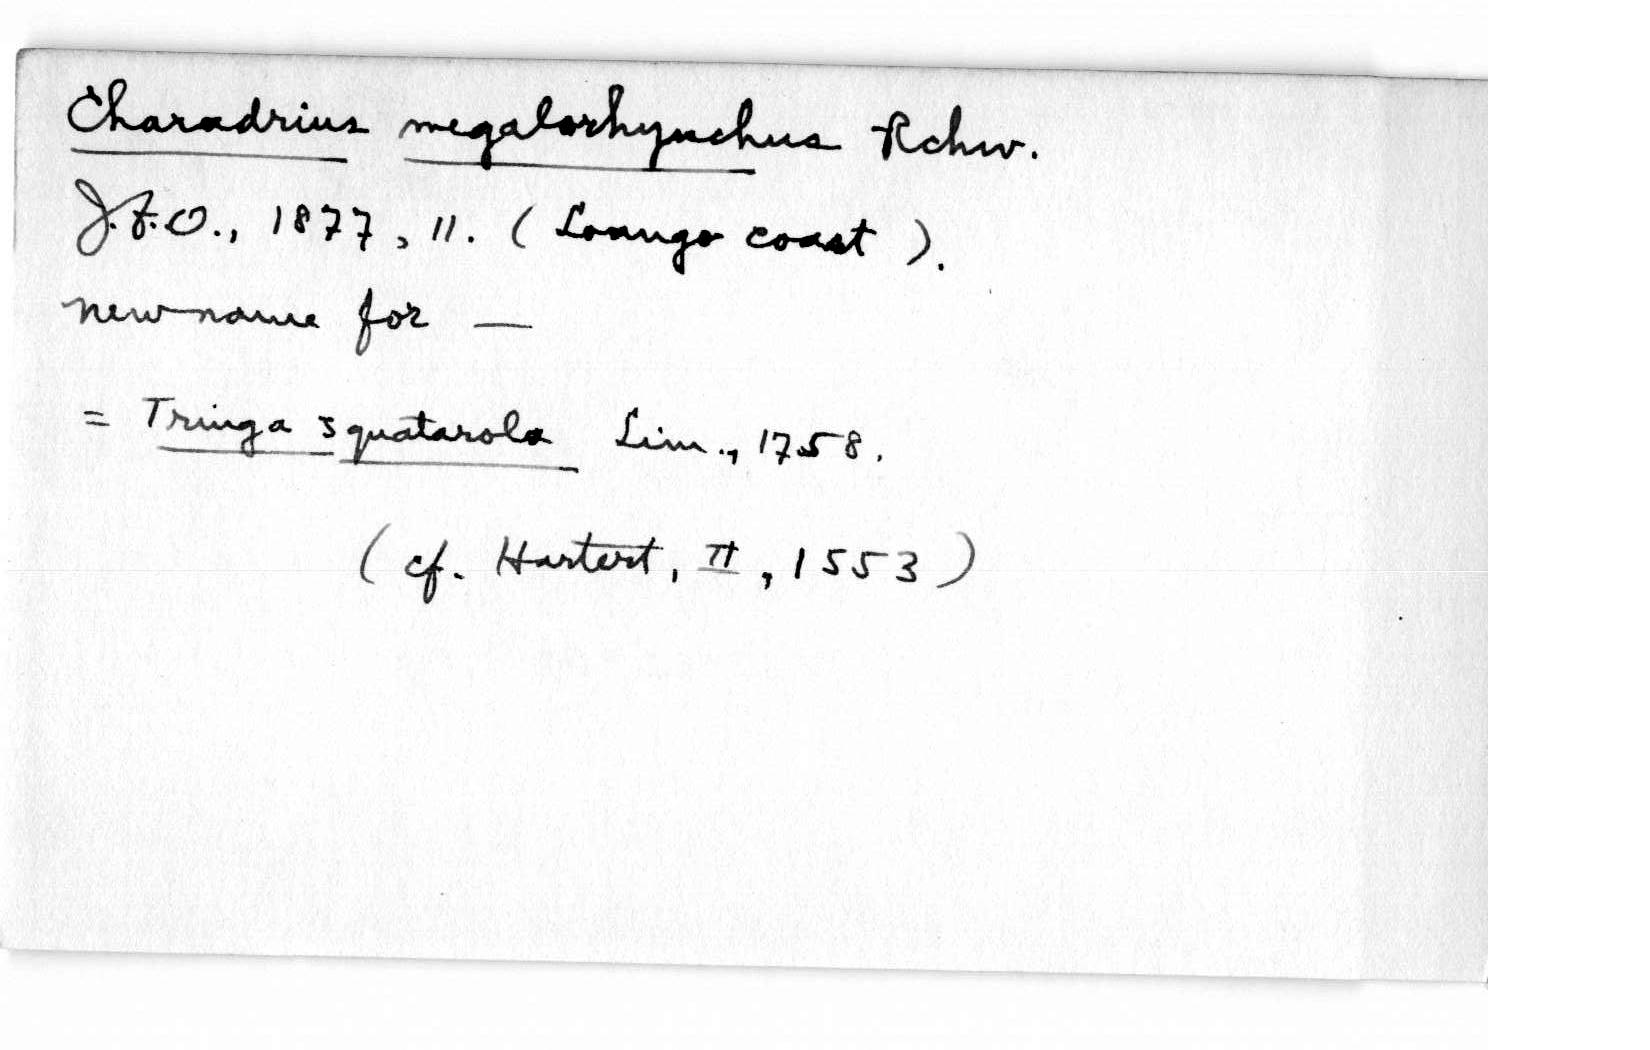 Charadrius megalorhynchus Rchw.
J.f.O., 1877, 11. (Loango coast).
new name for —
= Tringa squatarola Linn., 1758.
(cf. Hartert, II, 1553)